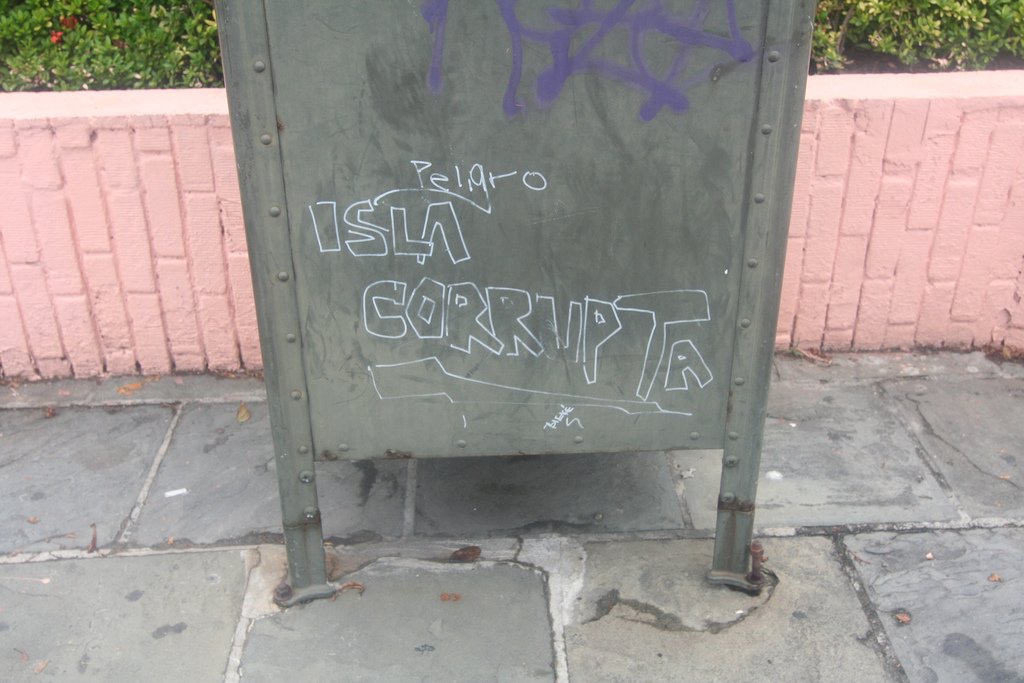 Peligro
ISLA
CORRUPTA